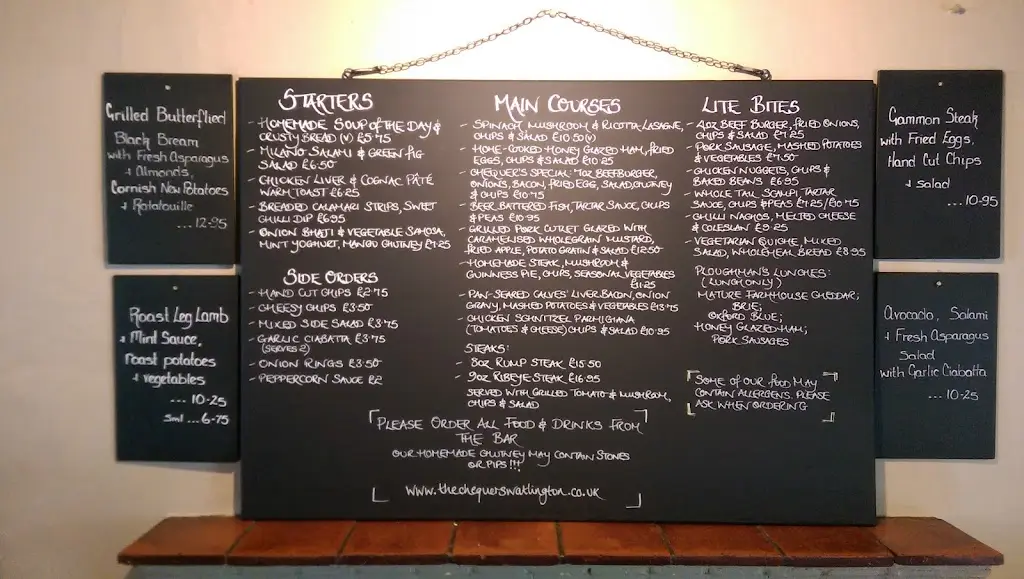 Grilled Butterflied
Black Bream
with Fresh Asparagus
+ Almonds,
Cornish New Potatoes
+ Ratatouille
... 12-95
Roast Leg Lamb
+ Mint Sauce,
roast potatoes
+ vegetables
... 10-25
Sml ... 6-75
STARTERS
- HOMEMADE SOUP OF THE DAY &
CRUSTY BREAD (V) £5.75
- MILANO SALAMI & GREEN FIG
SALAD £6.50
- CHICKEN LIVER & COGNAC PÂTÉ
WARM TOAST £6.25
- BREADED CALAMARI STRIPS, SWEET
CHILLI DIP £6.95
- ONION BHAJI & VEGETABLE SAMOSA,
MINT YOGHURT, MANGO CHUTNEY £7.25
SIDE ORDERS
- HAND CUT CHIPS £2.75
- CHEESY CHIPS £3.50
- MIXED SIDE SALAD £3.75
- GARLIC CIABATTA £3.75
(SERVES 2)
- ONION RINGS £3.50
- PEPPERCORN SAUCE £2
MAIN COURSES
- SPINACH MUSHROOM & RICOTTA LASAGNE,
CHIPS & SALAD £10.50 (V)
- HOME-COOKED HONEY GLAZED HAM, FRIED
EGGS, CHIPS & SALAD £10.25
- CHEQUER'S SPECIAL: 7OZ BEEFBURGER,
ONIONS, BACON, FRIED EGG, SALAD, CHUTNEY
& CHIPS £10.75
- BEER BATTERED FISH, TARTAR SAUCE, CHIPS
& PEAS £10.95
- GRILLED PORK CUTLET GLAZED WITH
CARAMELISED WHOLEGRAIN MUSTARD,
FRIED APPLE, POTATO GRATIN & SALAD £12.50
- HOMEMADE STEAK, MUSHROOM &
GUINNESS PIE, CHIPS, SEASONAL VEGETABLES
£11.25
- PAN-SEARED CALVES' LIVER, BACON, ONION
GRAVY, MASHED POTATOES & VEGETABLES £13.75
- CHICKEN SCHNITZEL PARMIGIANA
(TOMATOES & CHEESE) CHIPS & SALAD £10.95
STEAKS:
- 8OZ RUMP STEAK £15.50
- 9OZ RIBEYE STEAK £16.95
SERVED WITH GRILLED TOMATO & MUSHROOM,
CHIPS & SALAD
LITE BITES
- 4OZ BEEF BURGER, FRIED ONIONS,
CHIPS & SALAD £7.25
- PORK SAUSAGE, MASHED POTATOES
& VEGETABLES £7.50
- CHICKEN NUGGETS, CHIPS &
BAKED BEANS £6.95
- WHOLE TAIL SCAMPI, TARTAR
SAUCE, CHIPS & PEAS £7.25/£10.75
- CHILLI NACHOS, MELTED CHEESE
& COLESLAW £9.25
- VEGETARIAN QUICHE, MIXED
SALAD, WHOLEMEAL BREAD £8.95
PLOUGHMAN'S LUNCHES:
(LUNCH ONLY)
MATURE FARMHOUSE CHEDDAR;
BRIE;
OXFORD BLUE;
HONEY GLAZED HAM;
PORK SAUSAGES
SOME OF OUR FOOD MAY
CONTAIN ALLERGENS. PLEASE
ASK WHEN ORDERING
PLEASE ORDER ALL FOOD & DRINKS FROM
THE BAR
OUR HOMEMADE CHUTNEY MAY CONTAIN STONES
OR PIPS!!!
www.thechequerswatlington.co.uk
Gammon Steak
with Fried Eggs,
Hand Cut Chips
+ salad
... 10-95
Avocado, Salami
+ Fresh Asparagus
Salad
with Garlic Ciabatta
... 10-25